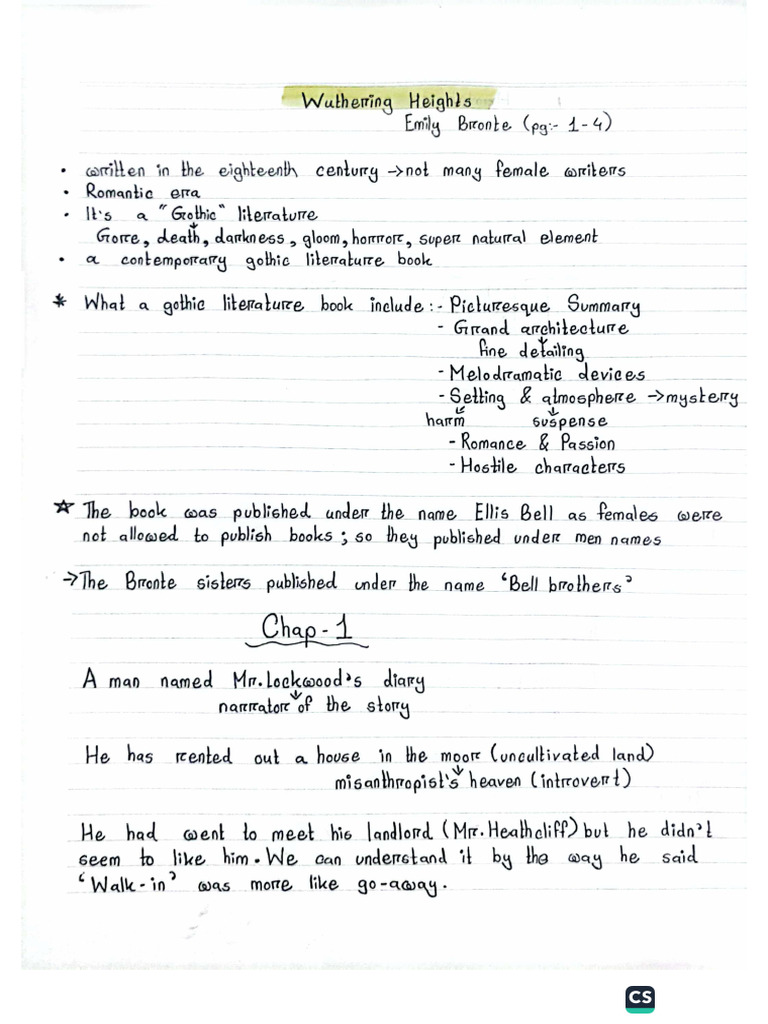 Wuthering Heights
Emily Bronte (pg:- 1-4)
• written in the eighteenth century → not many female writers
• Romantic era
• It's a "Gothic" literature
Gore, death, darkness, gloom, horror, super natural element
• a contemporary gothic literature book
* What a gothic literature book include:- Picturesque Summary
- Grand architecture
fine detailing
- Melodramatic devices
- Setting & atmosphere → mystery
harm suspense
- Romance & Passion
- Hostile characters
☆ The book was published under the name Ellis Bell as females were
not allowed to publish books; so they published under men names
→ The Bronte sisters published under the name 'Bell brothers'
Chap - 1
A man named Mr. Lockwood's diary
narrator of the story
He has rented out a house in the moor (uncultivated land)
misanthropist's heaven (introvert)
He had went to meet his landlord (Mr. Heathcliff) but he didn't
seem to like him. We can understand it by the way he said
'Walk-in' was more like go-away.
CS